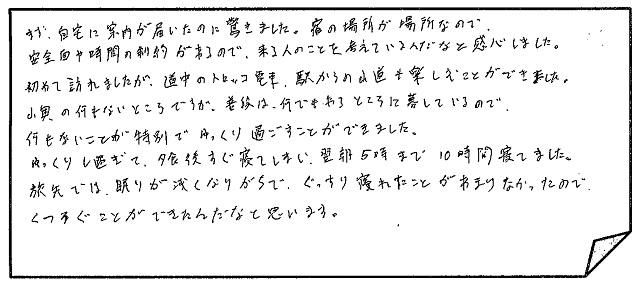 まず、自宅に案内が届いたのに驚きました。宿の場所が場所なので、
安全面や時間の制約があるので、来る人のことを考えているんだなと感心しました。
初めて訪れましたが、道中のトロッコ電車、駅からの山道も楽しむことができました。
山奥の何もないところですが、普段は、何でもあるところに暮しているので、
何もないことが特別でゆっくり過ごすことができました。
ゆっくりし過ぎて、夕食後すぐ寝てしまい、翌朝5時まで10時間寝てました。
旅先では、眠りが浅くなりがちで、ぐっすり寝れたことがあまりなかったので、
くつろぐことができたんだなと思います。